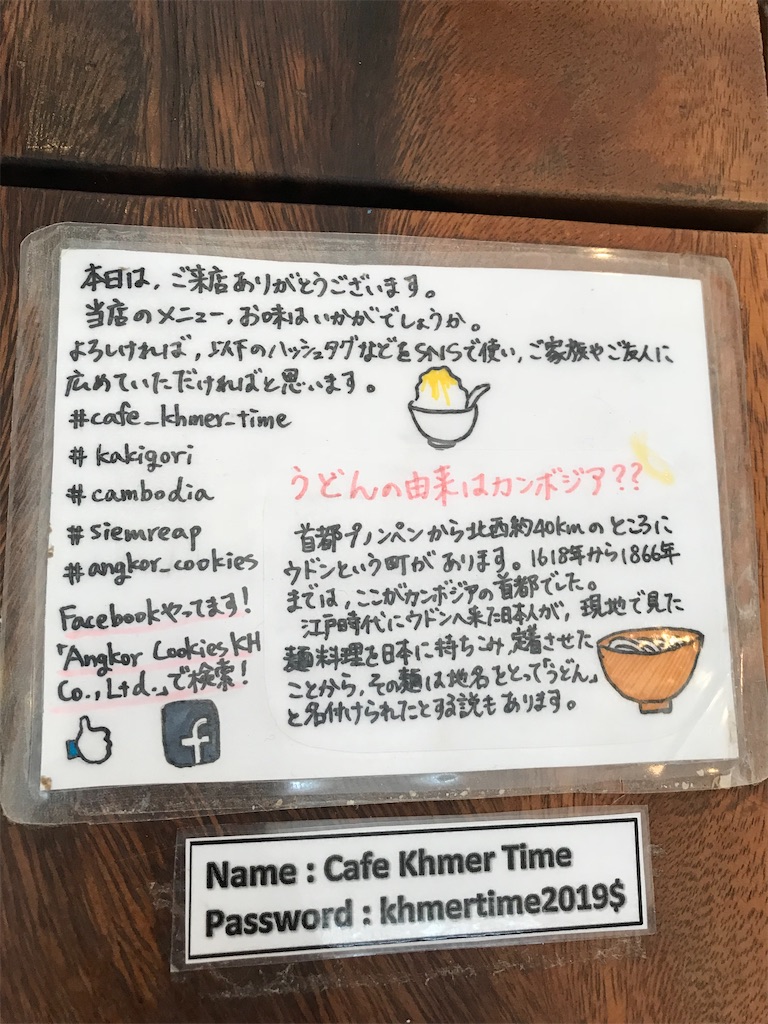 本日は、ご来店ありがとうございます。
当店のメニュー、お味はいかがでしょうか。
よろしければ、以下のハッシュタグなどをSNSで使い、ご家族やご友人に
広めていただければと思います。
#cafe_khmer_time
# kakigori
# cambodia
#siemreap
#angkor_cookies
Facebookやってます!
「Angkor Cookies KH
Co., Ltd.」で検索!
f
うどんの由来はカンボジア??
首都プノンペンから北西約40kmのところに
ウドンという町があります。1618年から1866年
までは、ここがカンボジアの首都でした。
江戸時代にウドンへ来た日本人が、現地で見た
麺料理を日本に持ちこみ、定着させた
ことから、その麺は地名をとって「うどん」
と名付けられたとする説もあります。
Name : Cafe Khmer Time
Password : khmertime2019$